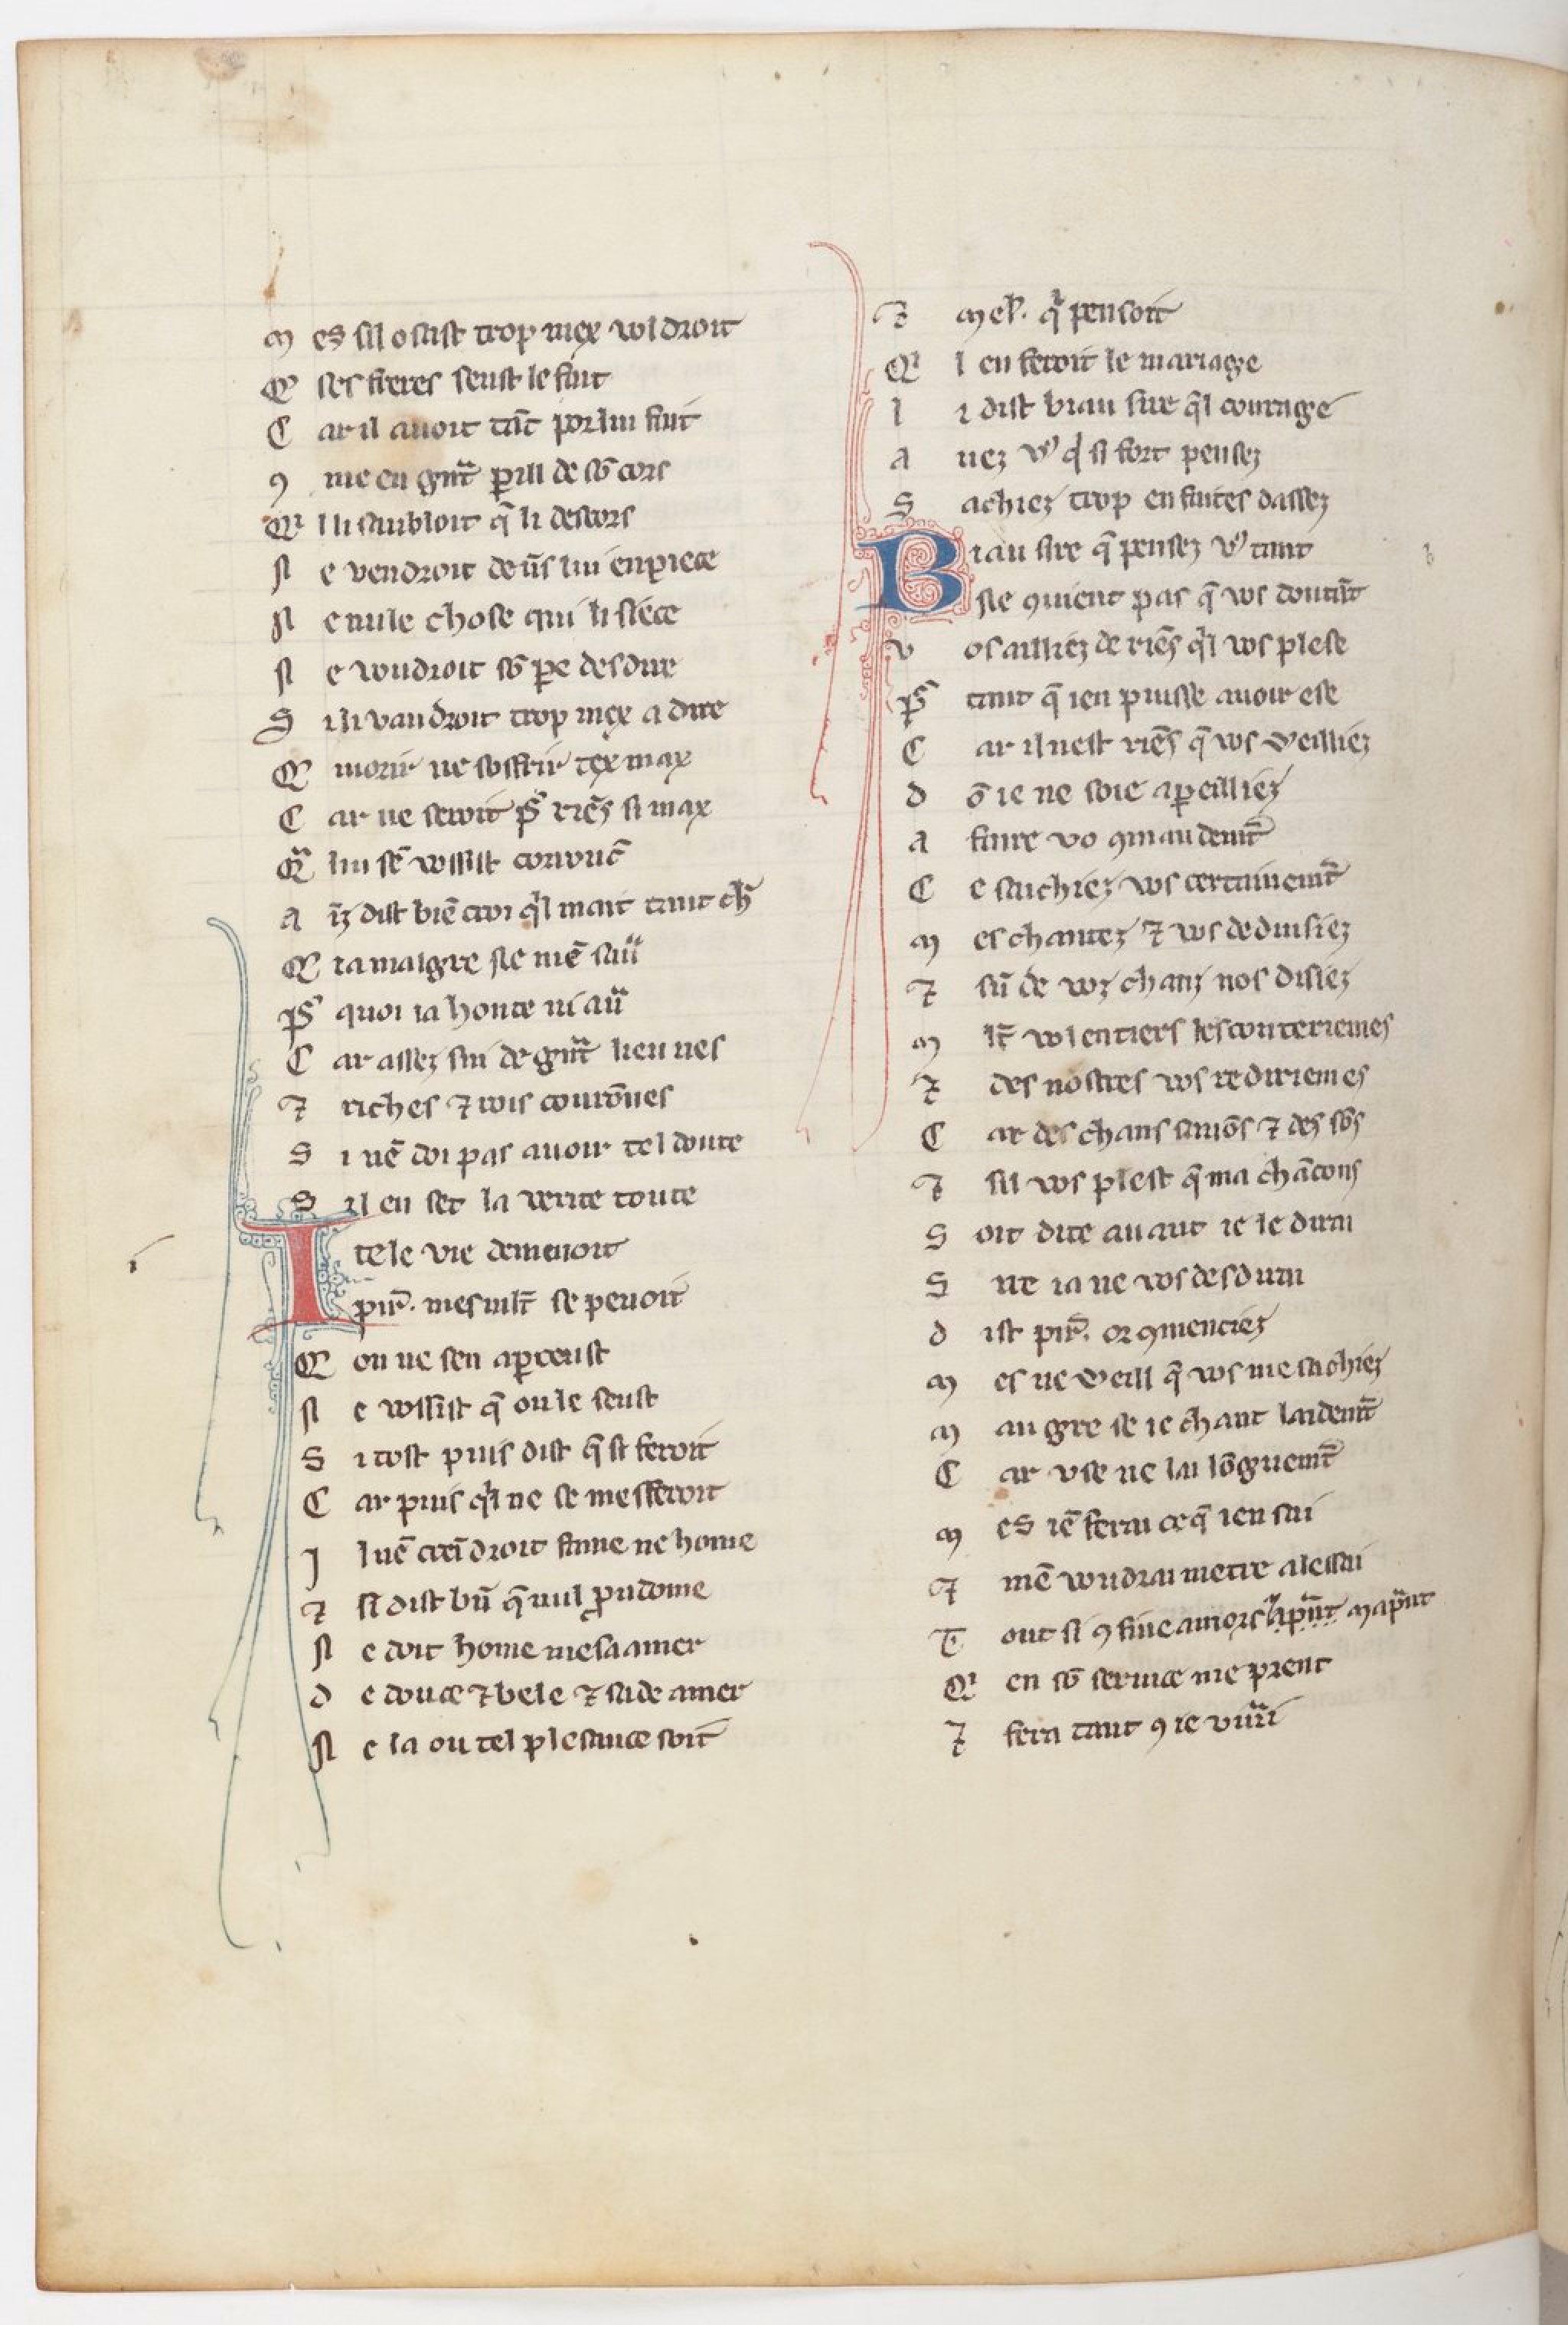 M es sil osast trop miex voldroit
Q̕ ses freres seust le fait
C ar il auoit tāt por lui fait
ꝯ me en gͣnt ꝑill de sō cors
Qͥ l li sanbloit q̄ li descors
N e vendroit deūs lui en piece
N e nule chose qui li siece
N e voudroit sō pe desdire
S i li vaudroit trop miex a dire
Q̕ morir ne soffrir tex max
C ar ne seroit p̕ riēs si max
Qͣ lui sē vossist
A īz dist biē croi qͥl mait tant ch̕
Q̕ ia malgre ne mē saūͣ
P̕ quoi ia honte ni aūͣ
C ar assez sui de gͣnt lieu nes
⁊ riches ⁊ rois courōnes
S i nē doi pas auoir tel doute
S il en set la verite toute
I tele vie demenoit
pirͬ. mes mlt̄ se penoit
Q̕ on ne sen aꝑceust
N e volsist q̄ on le seust
S i tost puis dist q̄ si feroit
C ar puis qͥl ne se mesferoit
I l nē criēdroit fame ne home
⁊ si dist bn̄ q̄ nul ꝓudome
N e doit home mesaamer
D e douce ⁊ bele ⁊ sade amer
N e la ou tel plesance soit
⁊ mel̕. qͥ pensoit
Qͥ l en feroit le mariage
l i dist biau sire q̄l courage
A uez vͦ qͥ si fort pensez
S achiez trop en faites dassez
B iau sire q̄ pensez vͦ tant
Ne ꝯuient pas q̄ vos doutāt
V os ailliez de riēs qͥl vos plese
P̕ tant q̄ ien puisse auoir ese
C ar il nest riēs q̄ vos veilliez
D ō ie ne soie aꝑeilliez
A faire vo ꝯmandemt̄
C e sachiez vos certainemt̄
M es chantez ⁊ vos deduisiez
⁊ sūͬ de voz chanz nos disiez
M lt̄ volentiers les conteriemes
⁊ des nostres vos rediriemes
C ar des chans sauōs ⁊ des sōs
⁊ sil vos plest q̄ ma chācons
S oit dite auant ie le dirai
S ire ia ne vos desdirai
D ist pirͬ. or ꝯmenciez
M es ne veill q̄ vos me sachiez
M au gre se ie chant laidemt̄
C ar vse ne lai lōguemt̄
M es iē ferai ce q̄ ien sai
⁊ mē voudrai metre a lessai
T out si ꝯ fine amors map̄nt
Qͥ en sō seruice me prent
⁊ fera tant ꝯ ie viuͣi